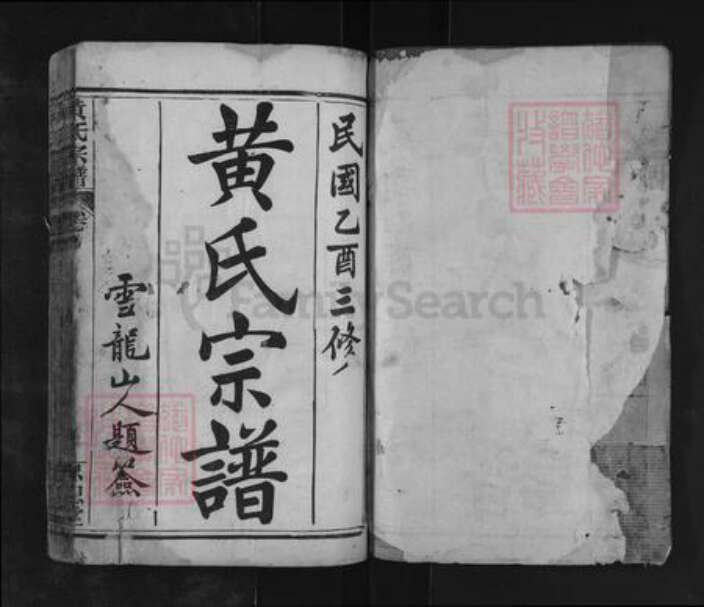 民國乙酉三修
黄氏宗譜
雪龍山人題簽
黄氏宗譜
FamilySearch